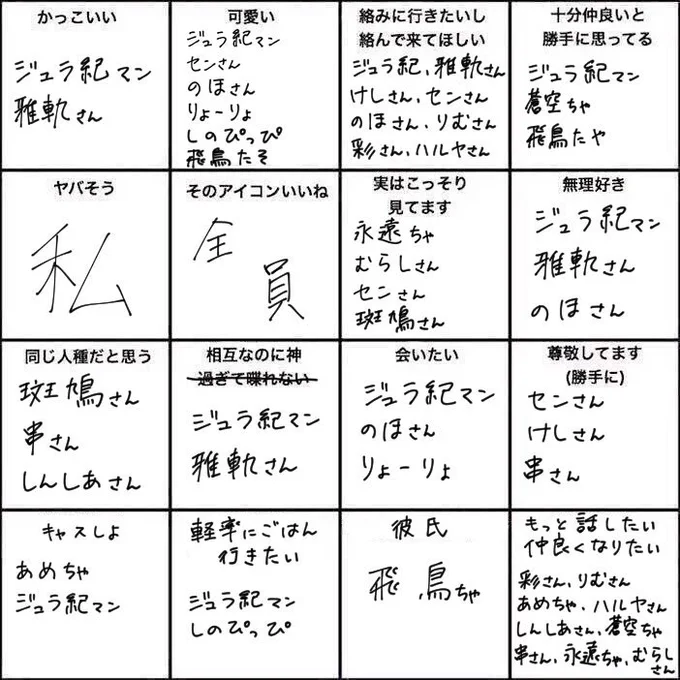 かっこいい
ジュラ紀マン
雅軌さん
可愛い
ジュラ紀マン
センさん
のほさん
りょーりょ
しのぴっぴ
飛鳥たそ
絡みに行きたいし
絡んで来てほしい
ジュラ紀、雅軌さん
けしさん、センさん
のほさん、りむさん
彩さん、ハルヤさん
十分仲良いと
勝手に思ってる
ジュラ紀マン
蒼空ちゃ
飛鳥たや
ヤバそう
私
そのアイコンいいね
全
員
実はこっそり
見てます
永遠ちゃ
むらしさん
センさん
斑鳩さん
無理好き
ジュラ紀マン
雅軌さん
のほさん
同じ人種だと思う
斑鳩さん
串さん
しんしあさん
相互なのに神
過ぎて喋れない
ジュラ紀マン
雅軌さん
会いたい
ジュラ紀マン
のほさん
りょーりょ
尊敬してます
(勝手に)
センさん
けしさん
串さん
キャスしよ
あめちゃ
ジュラ紀マン
軽率にごはん
行きたい
ジュラ紀マン
しのぴっぴ
彼氏
飛鳥ちゃ
もっと話したい
仲良くなりたい
彩さん、りむさん
あめちゃ、ハルヤさん
しんしあさん、蒼空ちゃ
串さん、永遠ちゃ、むらし
さん